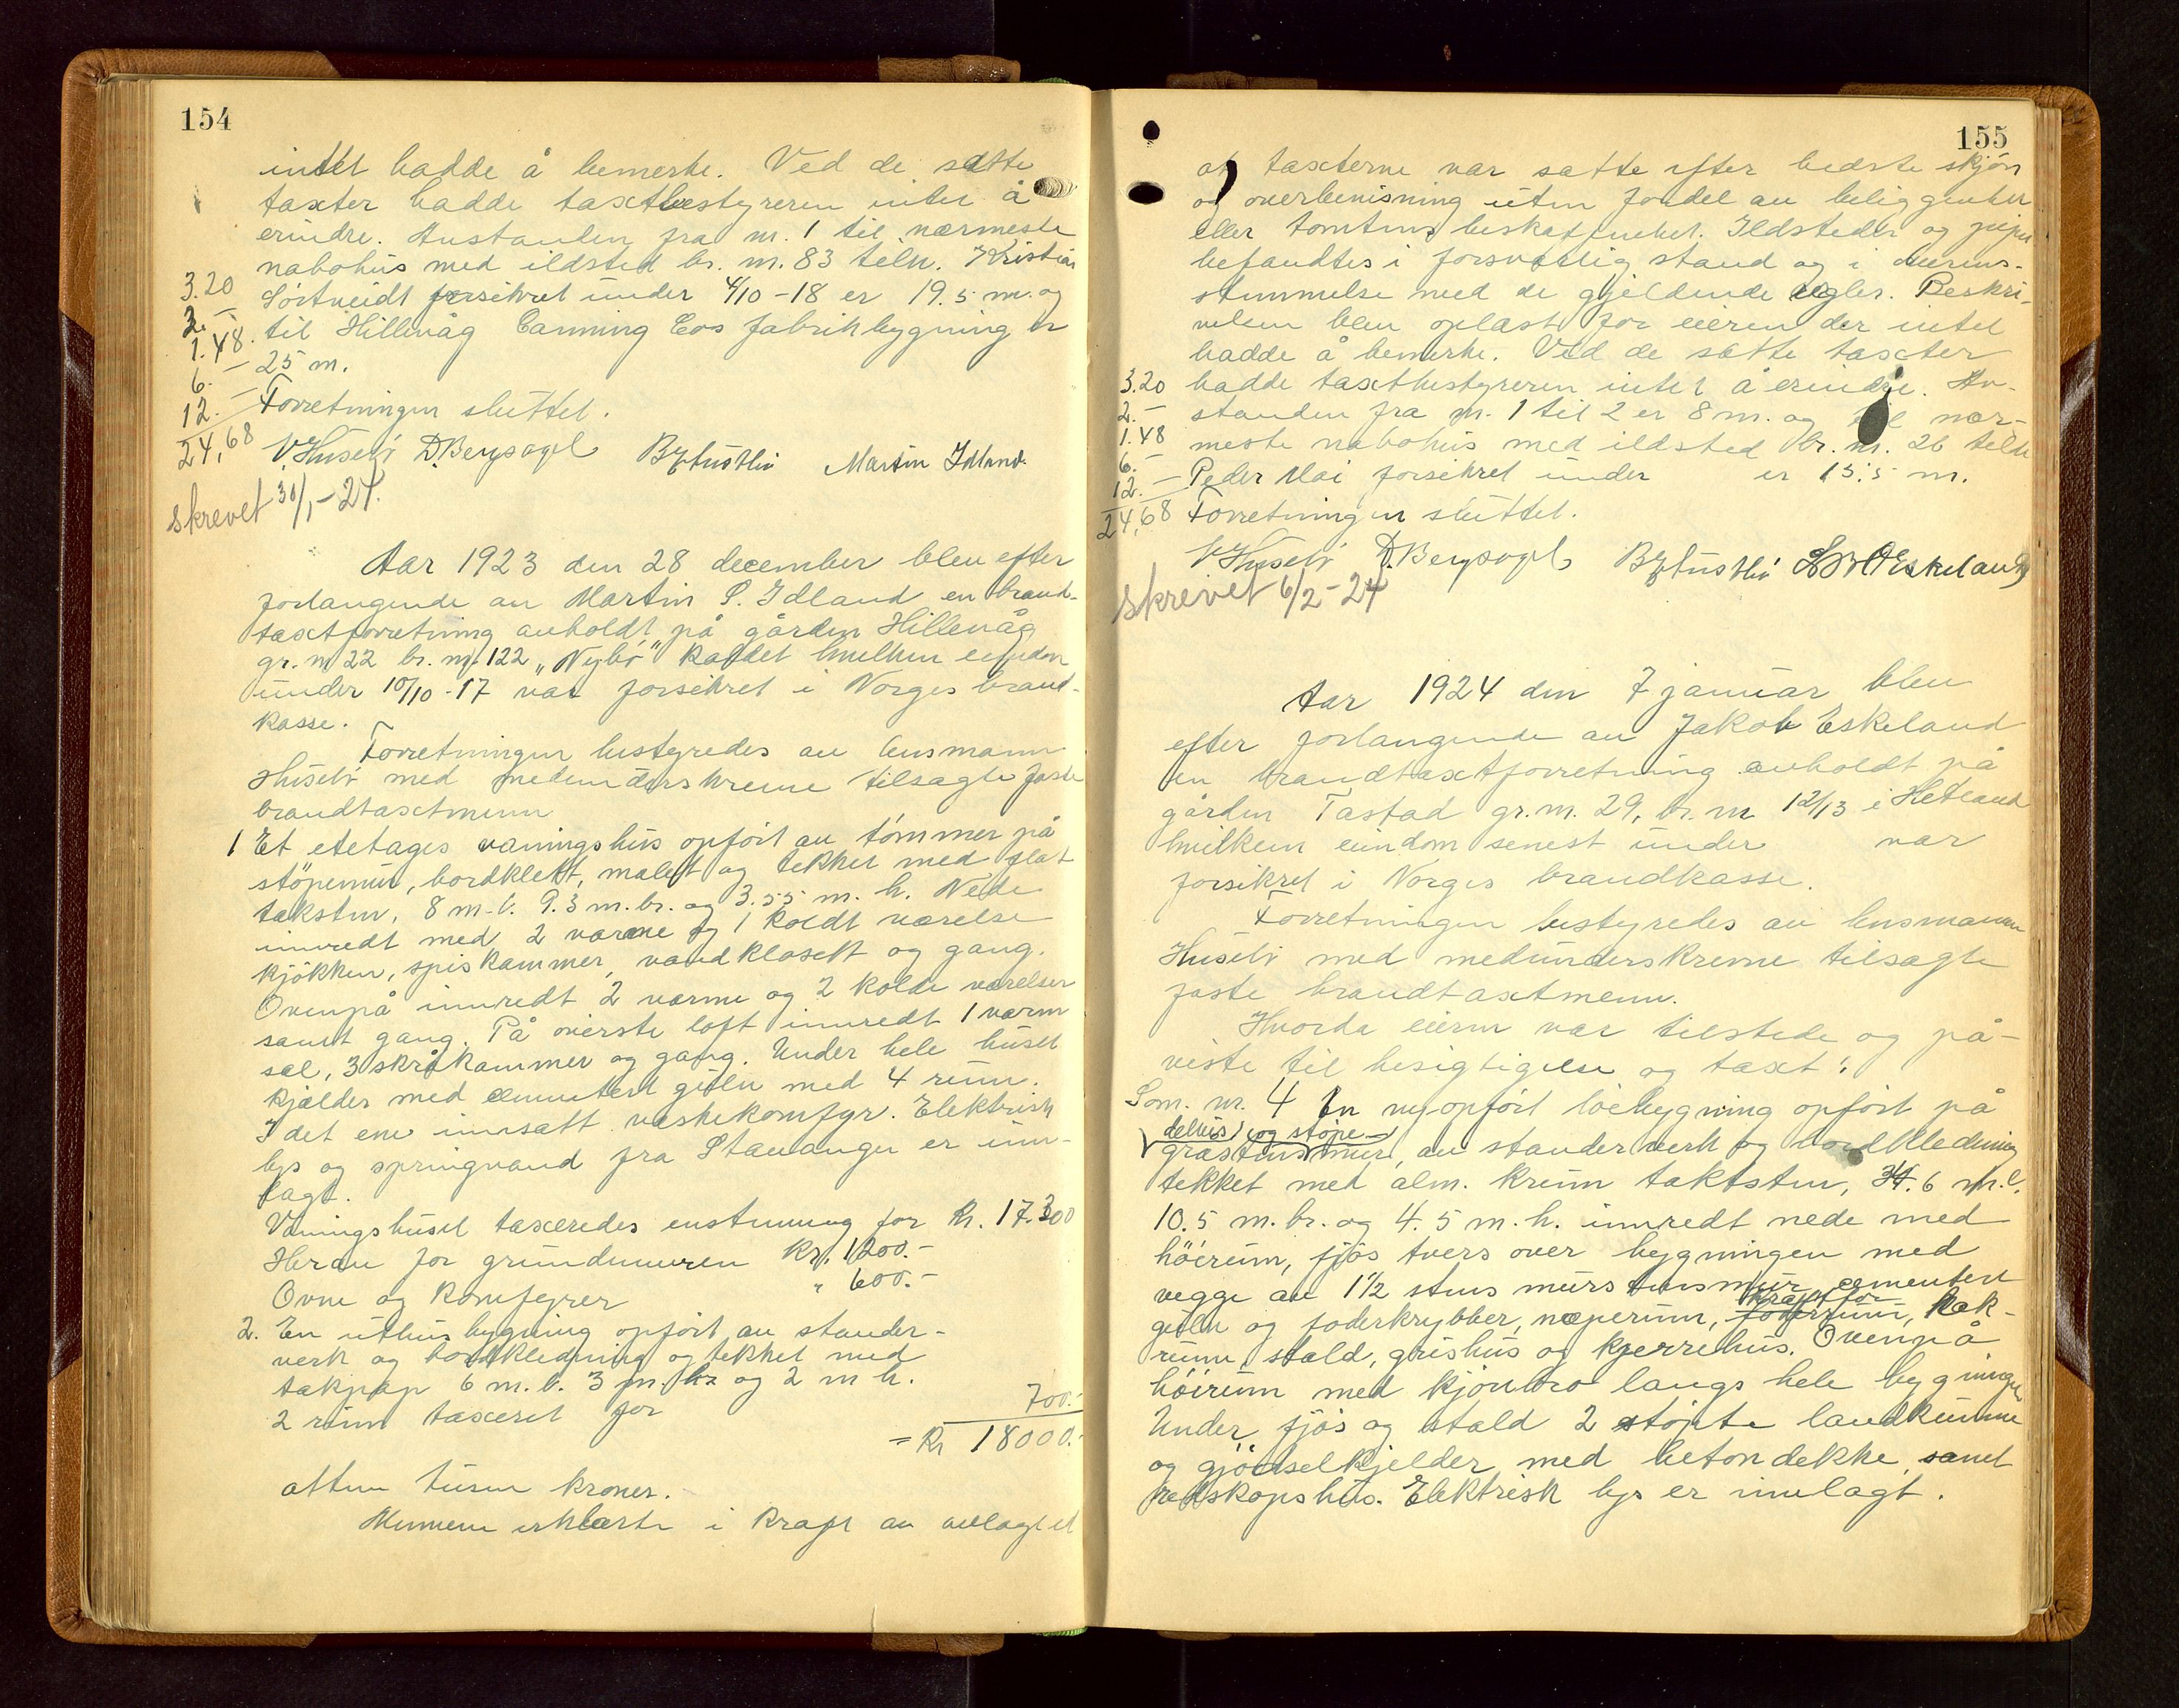 154
intet hadde å bemerke. Ved de satte
taxter hadde taxtbestyreren intet å
erindre. Avstanden fra nr. 1 til nærmeste
nabohus med ildsted br. nr. 83 tilh. Kristian
Sørtveidt forsikret under 4/10-18 er 19.5 m. og
til Hillevåg Canning Cos fabrikbygning er
25 m.
Forretningen sluttet.
3.20
2.-
1.48
6.-
12.-
24,68
V. Husebø D. Bergsagel Martin Idland.
skrevet 30/1-24.
Aar 1923 den 28 december blev efter
forlangende av Martin S. Idland en brand-
taxtforretning avholdt på gården Hillevåg
gr. nr 22 br. nr. 122 „Nybø" kaldet hvilken eiendom
under 10/10-17 var forsikret i Norges brand-
kasse.
Forretningen bestyredes av lensmann
Husebø med medunderskrevne tilsagte faste
brandtaxtmenn
1 Et etetages våningshus opført av tømmer på
støpemur, bordklett, malet og tekket med flat
taksten, 8 m. l. 9.3 m. br. og 3.55 m. h. Nede
innredt med 2 varme og 1 koldt værelse
kjøkken, spiskammer, vandklosett og gang.
Ovenpå innredt 2 varme og 2 kolde værelser
samt gang. På øverste loft innredt 1 varm
sal, 3 skråkammer og gang. Under hele huset
kjælder med cementert gulv med 4 rum.
I det ene innsatt vaskekomfyr. Elektrisk
lys og springvand fra Stavanger er inn-
lagt.
Våningshuset taxeredes enstemmig for kr. 17.300
Herav for grundmuren kr. 1200.-
Ovne og komfyrer " 600.-
2. En uthusbygning opført av stender-
verk og bordkledning og tekket med
takpap 6 m. l. 3 m. br og 2 m h.
2 rum taxeret for 700.-
= kr 18000.-
atten tusen kroner.
Mennene erklærte i kraft av avlagt ed
155
at taxterne var satte efter bedste skjøn
og overbevisning uten fordel av beliggenhet
eller tomtens beskaffenhet. Ildsteder og piper
befandtes i forsvarlig stand og i overens-
stemmelse med de gjeldende regler. Beskri-
velsen blev oplæst for eieren der intet
hadde å bemerke. Ved de satte taxter
hadde taxtbestyreren intet å erindre. Av-
standen fra nr. 1 til 2 er 8 m. og til nær-
meste nabohus med ildsted br. nr. 26 tilh
Peder Moi forsikret under er 15.5 m.
Forretningen sluttet.
3.20
2.-
1.48
6.-
12.-
24,68
V Husebø D. Bergsagel
skrevet 6/2-24
Aar 1924 den 7 januar blev
efter forlangende av Jakob Eskeland
en brandtaxtforretning avholdt på
gården Tastad gr. nr. 29, br. nr 12/13 i Hetland
hvilken eiendom senest under var
forsikret i Norges brandkasse.
Forretningen bestyredes av lensmannen
Husebø med medunderskrevne tilsagte
faste brandtaxtmenn.
Hvorda eieren var tilstede og på-
viste til besigtigelse og taxt:
Som nr. 4 En nyopført løebygning opført på
delvis og støpe-
gråstensmur, av stenderverk og bordkledning
tekket med alm. krum taksten, 34.6 m. l.
10.5 m. br. og 4.5 m. h. innredt nede med
høirum, fjøs tvers over bygningen med
vegge av 1½ stens murstensmur cementert
kraftfor
gulv og foderkrybber, næperum, foderrum, hak-
rum, stald, grishus og kjerrehus. Ovenpå
høirum med kjørebro langs hele bygningen
Under fjøs og stald 2 støpte landkummer
og gjødselkjelder med betondekke samt
redskapshus. Elektrisk lys er innlagt.